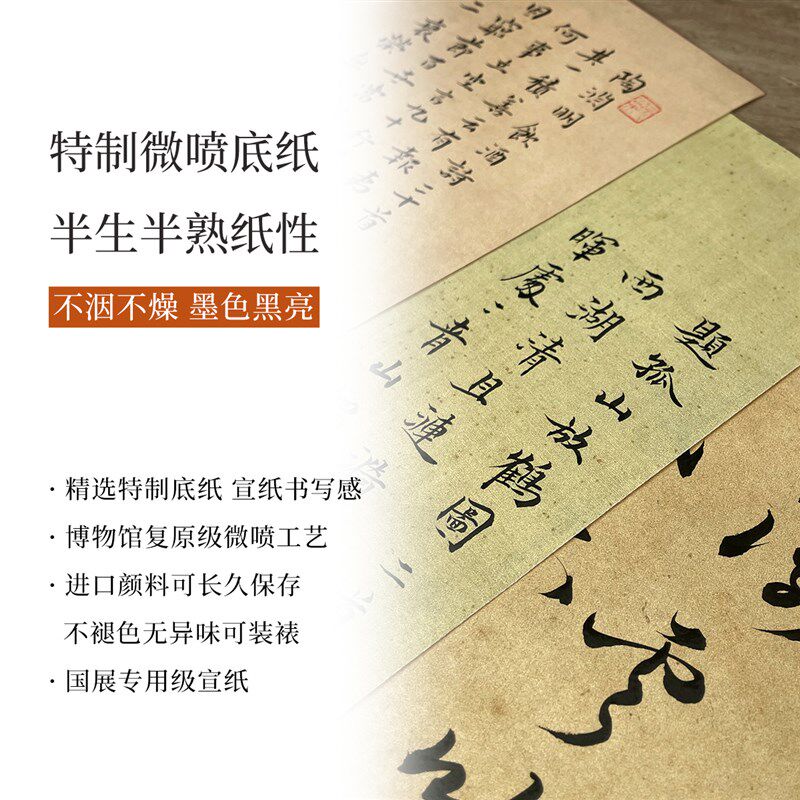 特制微喷底纸
半生半熟纸性
不洇不燥 墨色黑亮
· 精选特制底纸 宣纸书写感
· 博物馆复原级微喷工艺
· 进口颜料可长久保存
不褪色无异味可装裱
· 国展专用级宣纸
陶淵明飲酒詩二十首
其一 積善云有報
何事立空言
題孤山放鶴圖
西湖清且漣
暉處〻青山